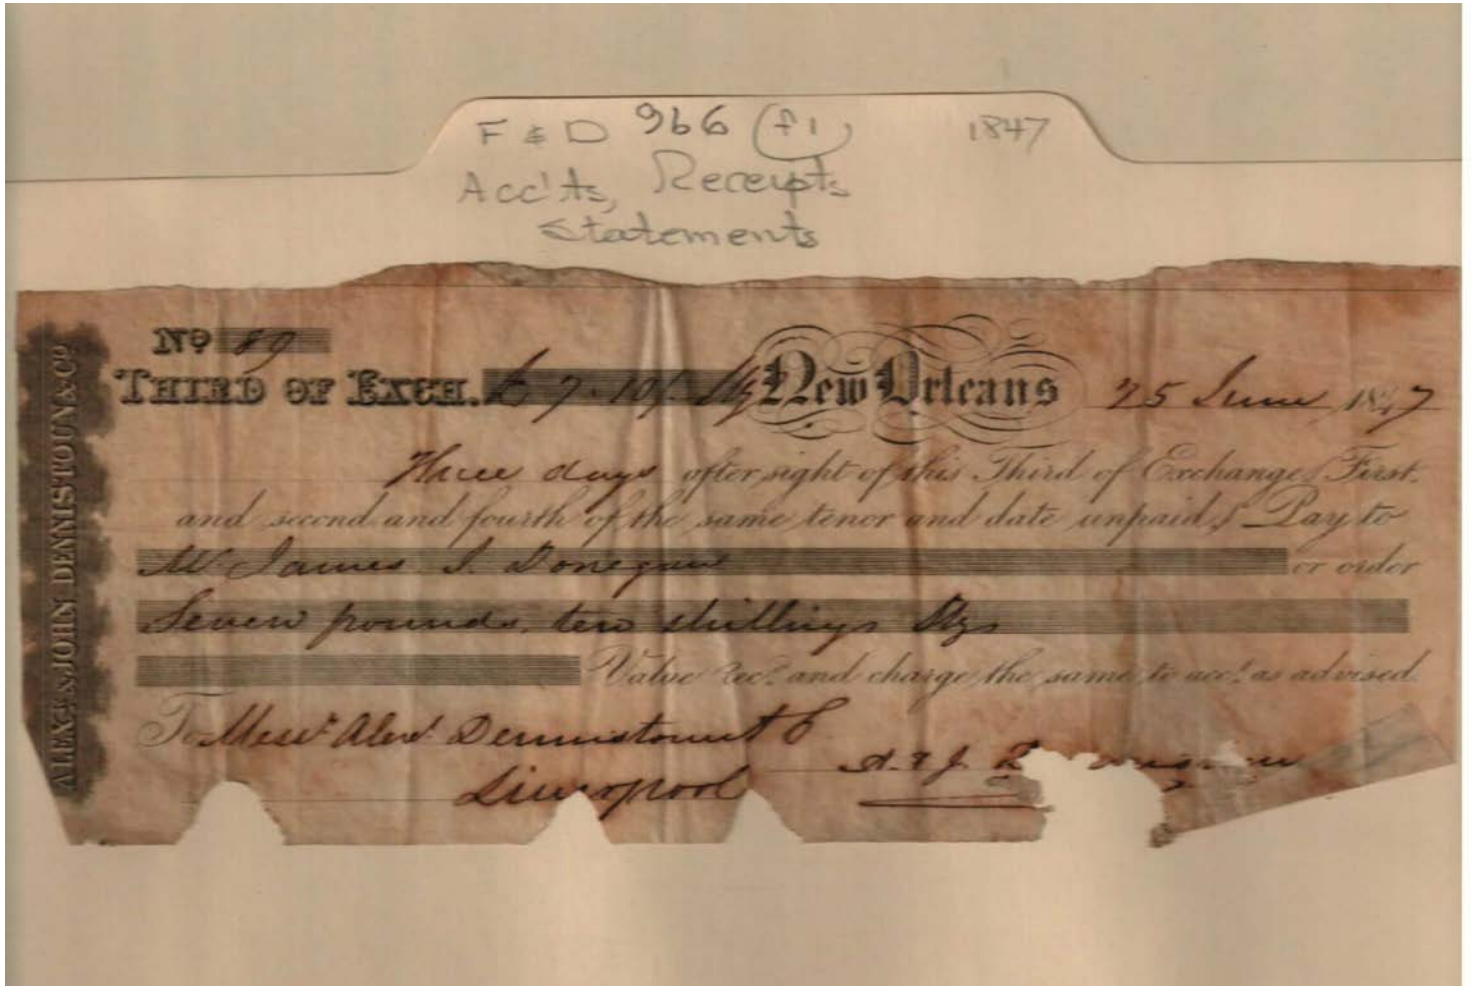 F & D 966 (f1) 1847
Acc'ts, Receipts
Statements
ALEXR & JOHN DENNISTOUN & CO
No 89
THIRD OF EXCH. £ 7.10/. Stg New Orleans 25 June 1847
Three days after sight of this Third of Exchange (First
and second and fourth of the same tenor and date unpaid) Pay to
Mr James J. Donegan or order
Seven pounds, ten shillings Stg
Value rec'd and charge the same to acct as advised
To Messrs Alexr Dennistoun & Co
Liverpool A. & J.